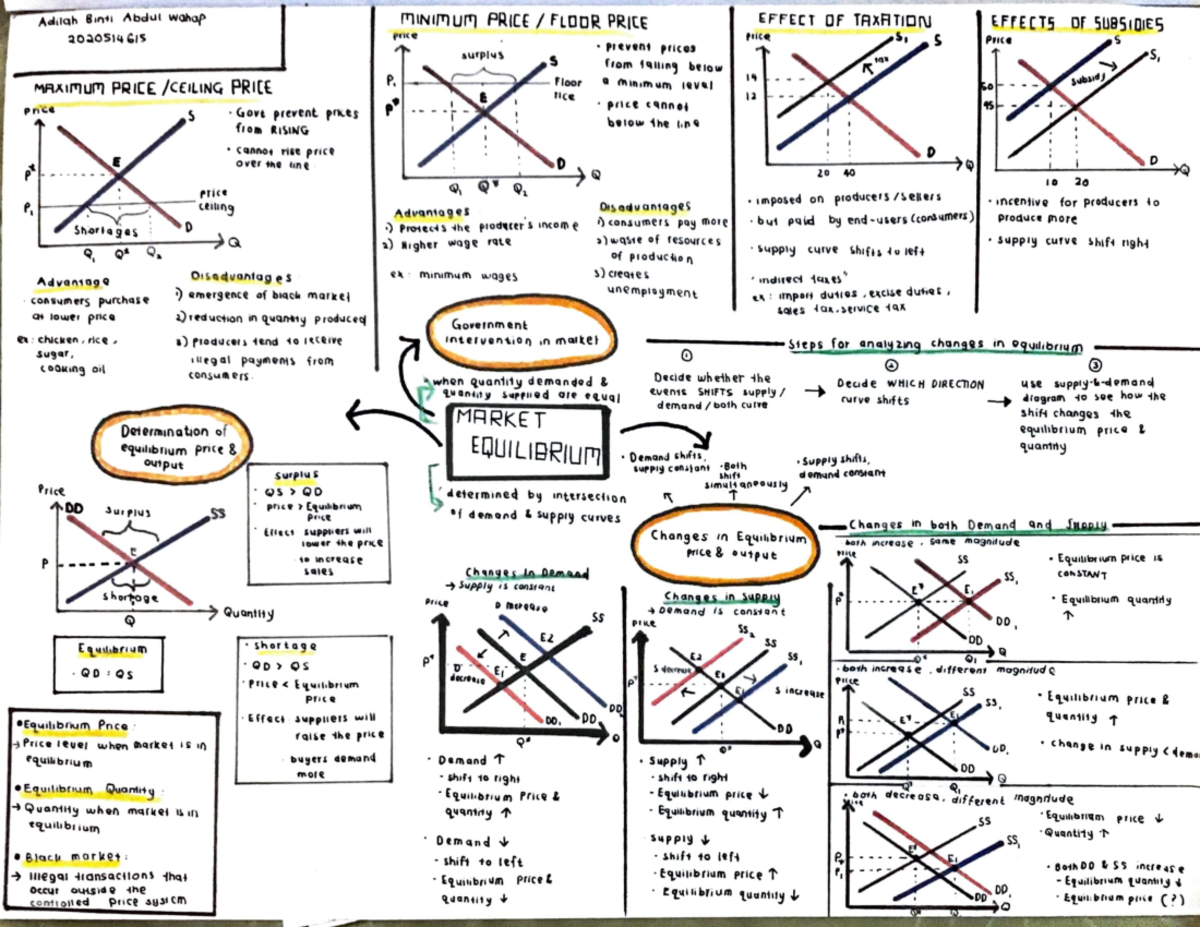 Adilah Binti Abdul Wahap
2020514615
MAXIMUM PRICE / CEILING PRICE
Price
S
E
P*
P₁
price
ceiling
Shortages
D
Q₁ Q* Q₂
Q
• Govt prevent prices
from RISING
• cannot rise price
over the line
Advantage
consumers purchase
at lower price
ex: chicken, rice,
sugar,
cooking oil
Disadvantages:
1) emergence of black market
2) reduction in quantity produced
3) Producers tend to receive
illegal payments from
consumers.
MINIMUM PRICE / FLOOR PRICE
Price
surplus
S
P₁
Floor
rice
E
P*
D
Q₁ Q* Q₂
Q
• prevent prices
from falling below
a minimum level
• price cannot
below the line
Advantages
1) Protects the producer's income
2) Higher wage rate
ex: minimum wages
Disadvantages
1) consumers pay more
2) waste of resources
of production
3) creates
unemployment
EFFECT OF TAXATION
Price
S₁
S
tax
14
12
D
20 40
Q
• imposed on producers/sellers
• but paid by end-users (consumers)
• supply curve shifts to left
"indirect taxes"
ex: import duties, excise duties,
sales tax, service tax
EFFECTS OF SUBSIDIES
Price
S
S₁
subsidy
50
45
D
10 20
Q
• incentive for producers to
produce more
• supply curve shift right
Government
intervention in market
when quantity demanded &
quantity supplied are equal
MARKET
EQUILIBRIUM
determined by intersection
of demand & supply curves
Steps for analyzing changes in equilibrium
①
Decide whether the
events SHIFTS supply/
demand/both curve
②
Decide WHICH DIRECTION
curve shifts
③
use supply-&-demand
diagram to see how the
shift changes the
equilibrium price &
quantity
Determination of
equilibrium price &
output
Price
DD
surplus
SS
E
P
shortage
Q
Quantity
Surplus
• QS > QD
• price > Equilibrium
Price
• Effect suppliers will
lower the price
to increase
sales
Equilibrium
• QD = QS
• shortage
• QD > QS
• Price < Equilibrium
Price
• Effect: suppliers will
raise the price
buyers demand
more
• Equilibrium Price:
→ Price level when market is in
equilibrium
• Equilibrium Quantity:
→ Quantity when market is in
equilibrium
• Black market:
→ Illegal transactions that
occur outside the
controlled price system
• Demand shifts,
supply constant
• Both
shift
simultaneously
• Supply shifts,
demand constant
Changes in Equilibrium
price & output
Changes in Demand
→ Supply is constant
Price
D increase
SS
E2
E
P*
D
decrease
E₁
DD₁
DD
DD₂
Q*
Q
• Demand ↑
• shift to right
• Equilibrium Price &
quantity ↑
• Demand ↓
• shift to left
• Equilibrium Price &
quantity ↓
Changes in supply
→ Demand is constant
Price
SS₂
SS
SS₁
E2
S decrease
P*
S increase
DD
Q*
Q
• Supply ↑
• shift to right
• Equilibrium price ↓
• Equilibrium quantity ↑
Supply ↓
• shift to left
• Equilibrium price ↑
• Equilibrium quantity ↓
Changes in both Demand and Supply
both increase, same magnitude
Price
SS
SS₁
P*
E*
E₁
DD₁
DD
Q* Q₁
Q
• Equilibrium price is
constant
• Equilibrium quantity
↑
• both increase, different magnitude
Price
SS
SS₁
P₁
P*
E*
E₁
DD
Q* Q₁
Q
• Equilibrium price &
quantity ↑
• change in supply < dema
• both decrease, different magnitude
SS
SS₁
E₁
DD₁
DD
Q
• Equilibrium price ↓
• Quantity ↑
• Both DD & SS increase
- Equilibrium quantity ↓
- Equilibrium price (?)